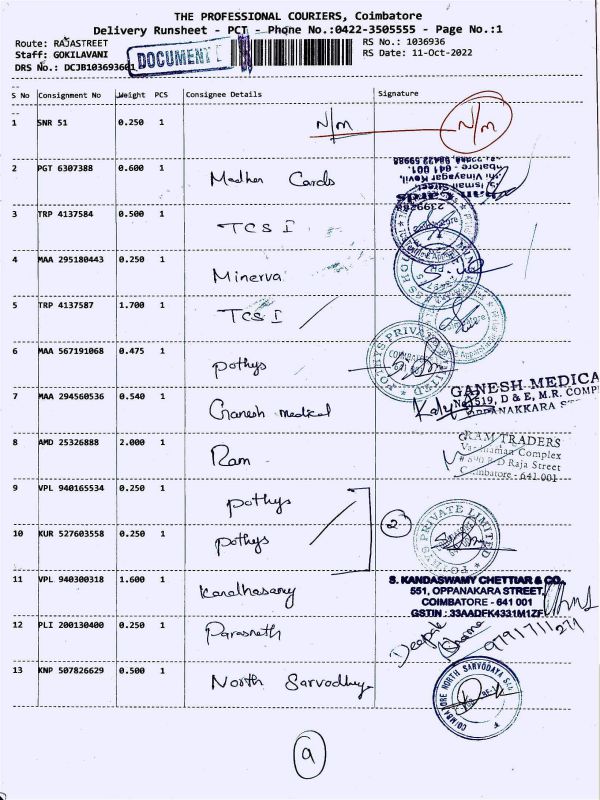 THE PROFESSIONAL COURIERS, Coimbatore
Delivery Runsheet - PCT - Phone No.:0422-3505555 - Page No.:1
Route: RAJASTREET RS No.: 1036936
Staff: GOKILAVANI DOCUMENT RS Date: 11-Oct-2022
DRS No.: DCJB1036936
S No Consignment No Weight PCS Consignee Details Signature
1 SNR 51 0.250 1 N/m N/m
2 PGT 6307388 0.600 1 Madhan Cards
3 TRP 4137584 0.500 1 TCS I
4 MAA 295180443 0.250 1 Minerva
5 TRP 4137587 1.700 1 TCS I
6 MAA 567191068 0.475 1 pothys
POTHYS PRIVATE LIMITED
7 MAA 294560536 0.540 1 Ganesh medical
GANESH MEDICA
519, D & E, M.R. COMP
OPPANAKKARA
8 AMD 25326888 2.000 1 Ram
RAM TRADERS
Complex
D Raja Street
Coimbatore - 641 001
9 VPL 940165534 0.250 1 pothys
2
10 KUR 527603558 0.250 1 pothys
POTHYS PRIVATE LIMITED
11 VPL 940300318 1.600 1 Kandhasamy
S. KANDASWAMY CHETTIAR & CO.
551, OPPANAKARA STREET,
COIMBATORE - 641 001
GSTIN : 33AADFK4331M1ZF
12 PLI 200130400 0.250 1 Parasnath
Deepak Sharma
9791711271
13 KNP 507826629 0.500 1 North Sarvodhya
COIMBATORE NORTH SARVODAYA
9